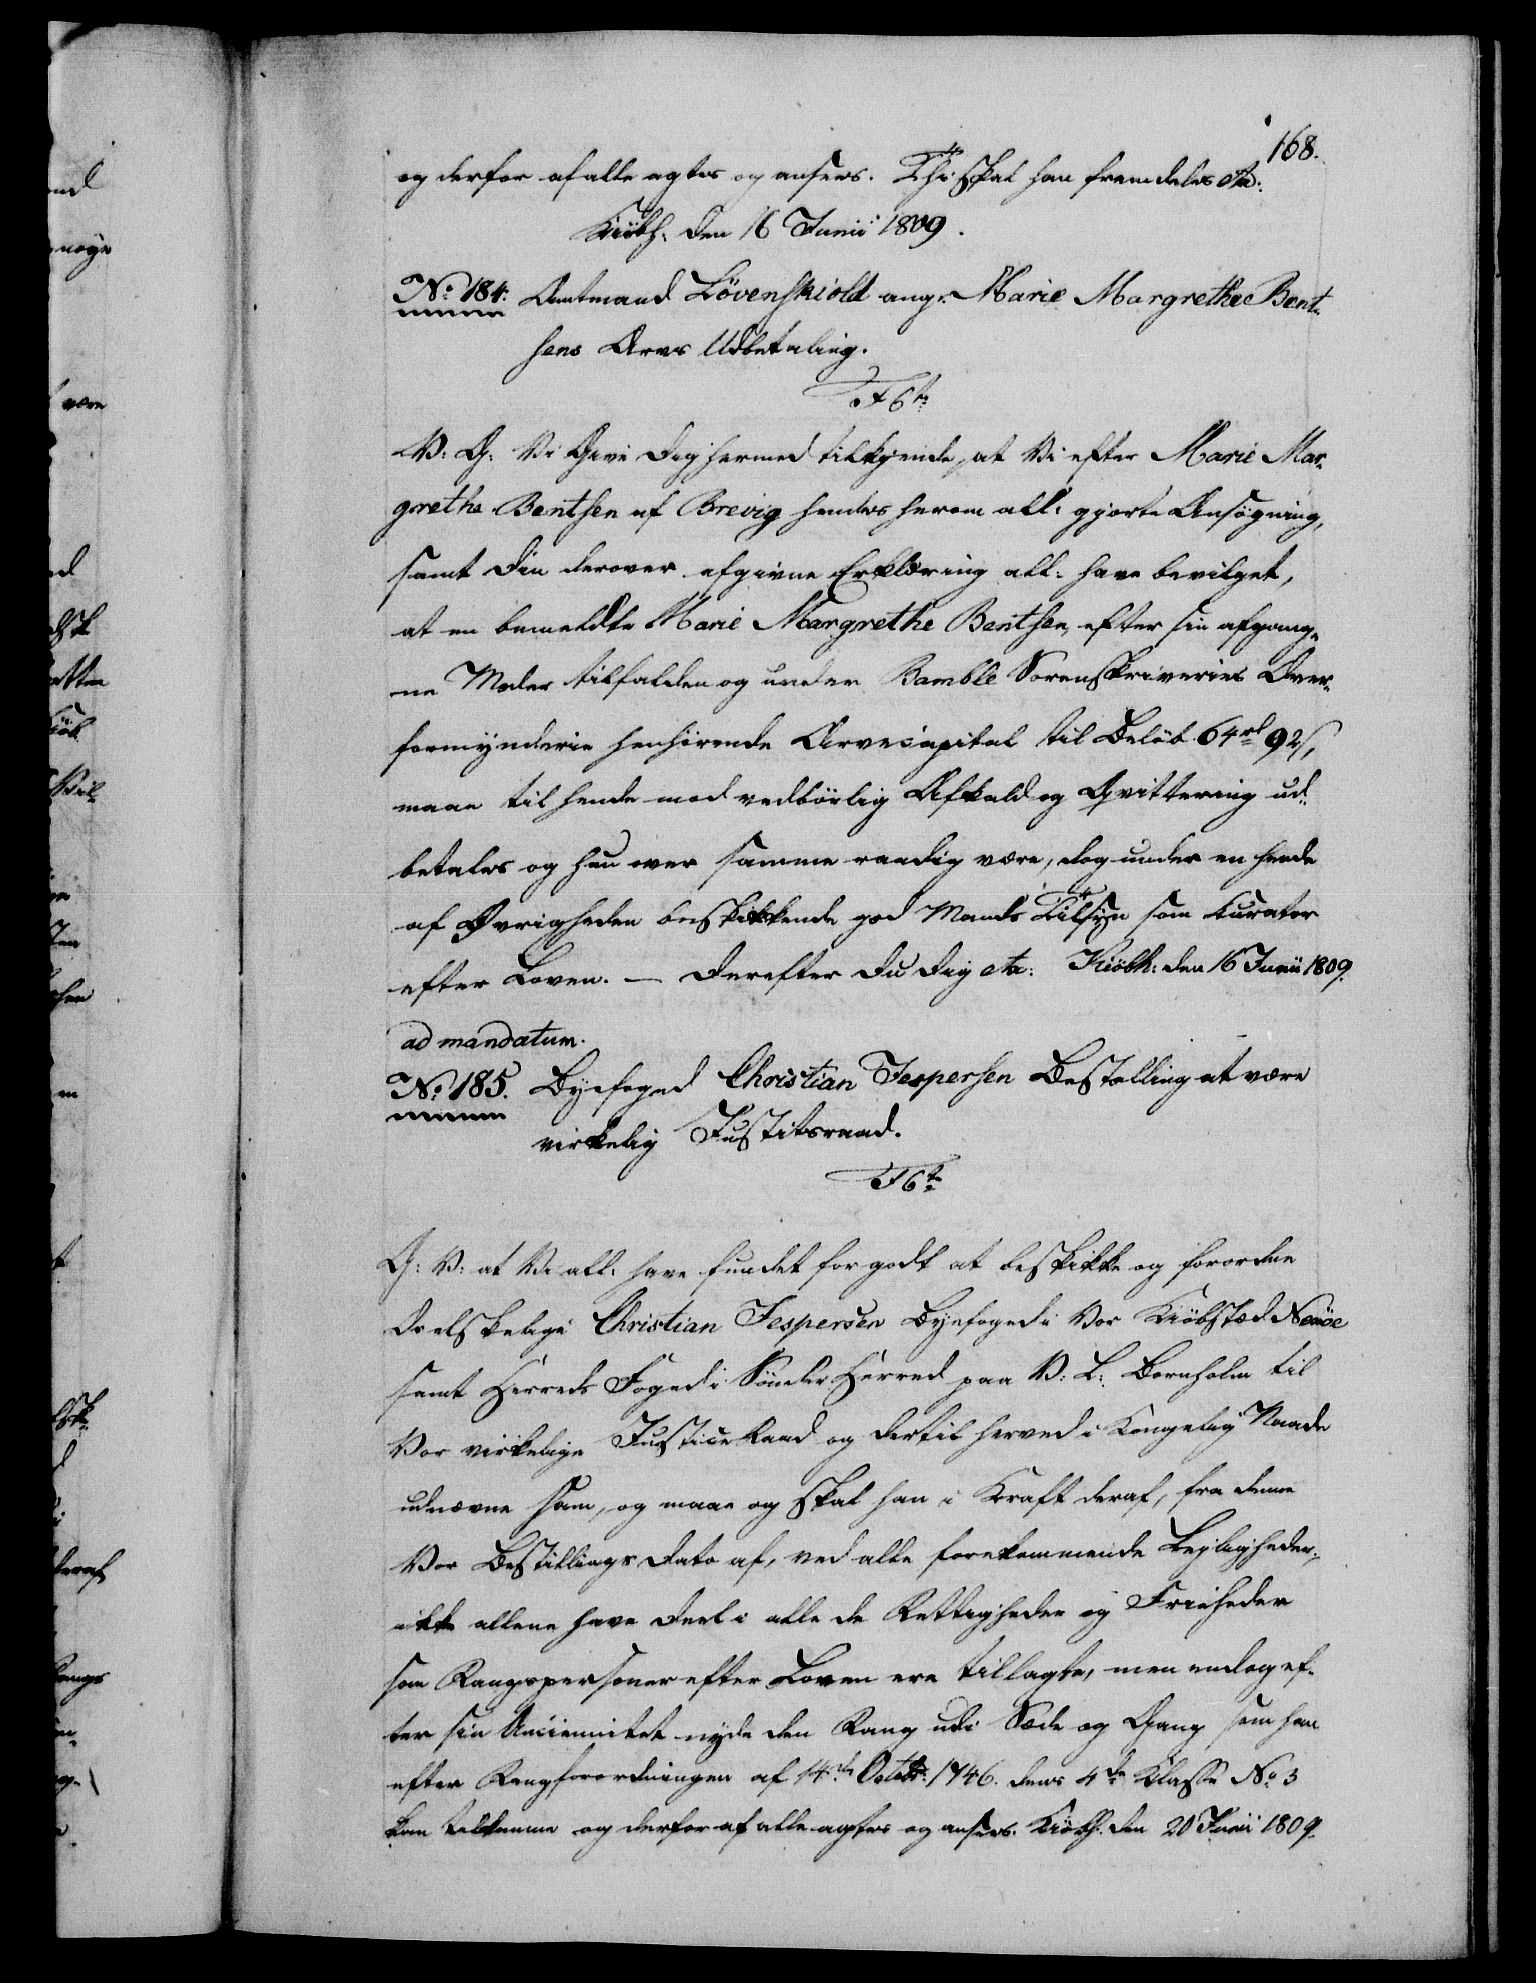 168.
og derfor af alle agtes og ansees. Thi skal han fremdeles etc:
Kiöbh: den 16 Junii 1809.
No 184. Amtmand Lövenskiold angl. Marie Margrethe Bent-
sens Arvs Udbetaling.
F 6te
V: G: Vi Give Dig hermed tilkjende, at Vi efter Marie Mar-
grethe Bentsen af Brevig hendes herom all: gjorte Ansögning,
samt Din derover afgivne Erklæring all: have bevilget,
at en bemeldte Marie Margrethe Bentsen, efter sin afgang-
ne Moder tilfalden og under Bamble Sorenskriveries Over-
formynderie henhörende Arvecapital til Belöb 64 rd 92 s,
maae til hende mod vedbörlig Afkald og Qvittering ud-
betales og hun over samme raadig være, dog under en hende
af Övrigheden beskikkende god Mands Tilsyn som Curator
efter Loven. — Derefter Du Dig etc: Kiöbh: den 16 Junii 1809.
ad mandatum.
No 185. Byefoged Christian Jespersen Bestalling at være
virkelig Justitsraad.
F 6te
G: V: at Vi all: have fundet for godt at beskikke og forordne
Os elskelige Christian Jespersen Byefoged i Vor Kiöbstæd Nexöe
samt Herreds Foged i Sönder Herred paa V: L: Bornholm til
Vor virkelige Justice Raad og dertil herved i Kongelig Naade
udnævne ham, og maae og skal han i Kraft deraf, fra denne
Vor Bestallings Dato af, ved alle forekommende Lejligheder,
ikke allene have Deel i alle de Rettigheder og Friheder
som Rangspersoner efter Loven ere tillagte, men endog ef-
ter sin Anciennitet nyde den Rang udi Sæde og Gang som ham
efter Rangforordningen af 14de Octobr. 1746. dens 4de Klasse No 3
kan tilkomme og derfor af alle agtes og ansees. Kiöbh. den 20 Junii 1809.